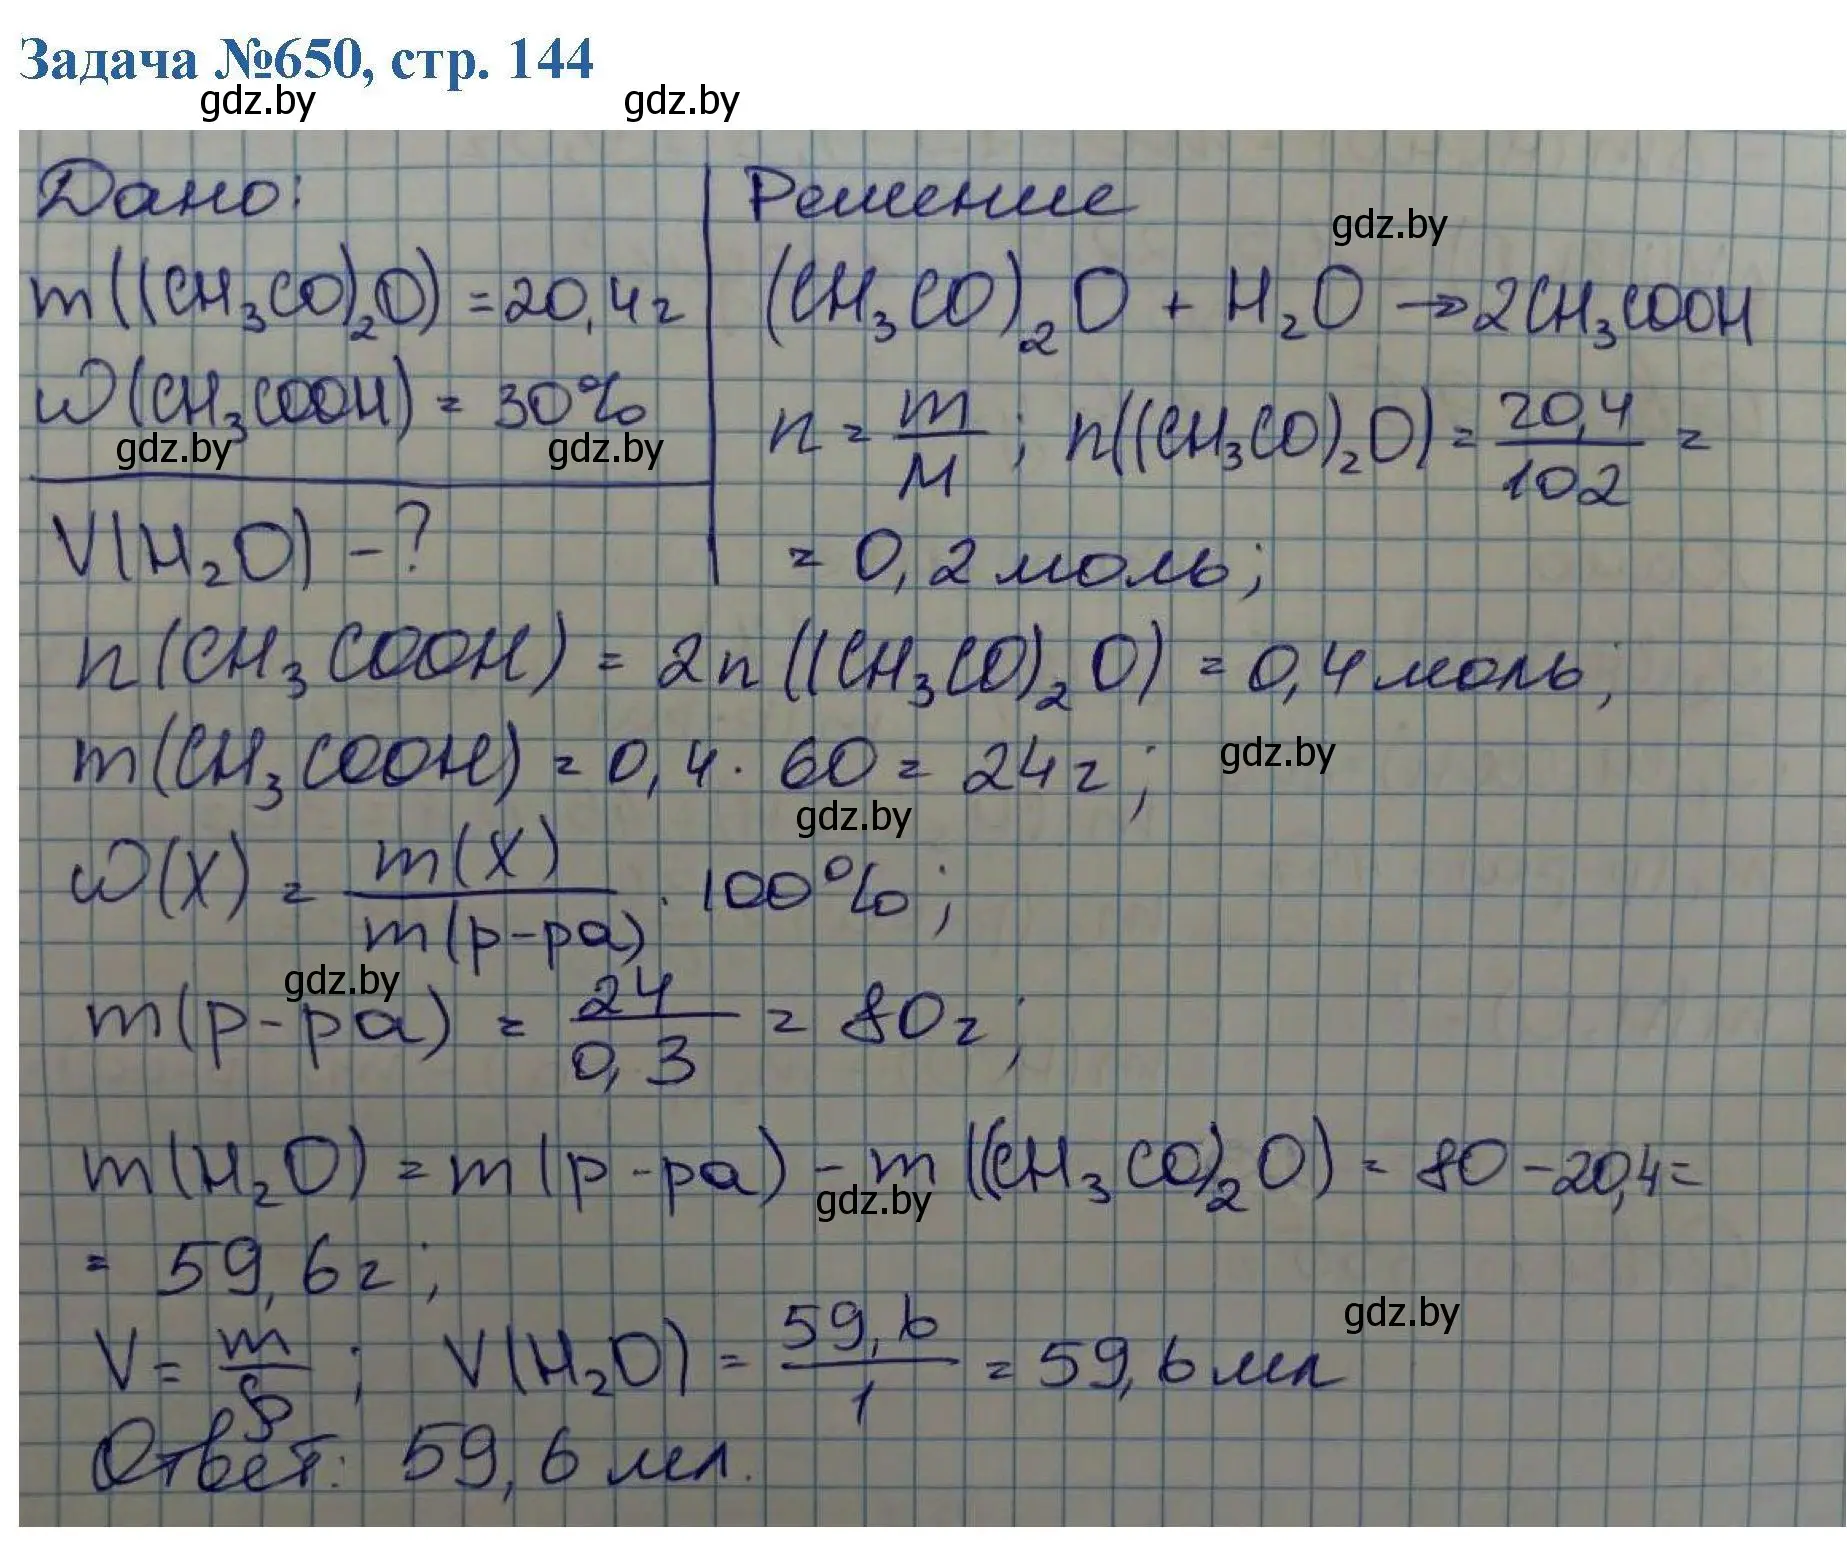 Задача №650, стр. 144
gdz.by gdz.by
Дано:
m((CH₃CO)₂O) = 20,4 г
ω(CH₃COOH) = 30%
gdz.by gdz.by
V(H₂O) - ?
Решение
gdz.by
(CH₃CO)₂O + H₂O → 2CH₃COOH
n = m/M ; n((CH₃CO)₂O) = 20,4/102 =
= 0,2 моль;
n(CH₃COOH) = 2n((CH₃CO)₂O) = 0,4 моль;
m(CH₃COOH) = 0,4 · 60 = 24 г;
gdz.by
gdz.by
ω(X) = m(X)/m(р-ра) · 100%;
gdz.by
m(р-ра) = 24/0,3 = 80 г;
m(H₂O) = m(р-ра) - m((CH₃CO)₂O) = 80 - 20,4 =
gdz.by
= 59,6 г;
gdz.by
V = m/ρ ; V(H₂O) = 59,6/1 = 59,6 мл
Ответ: 59,6 мл.